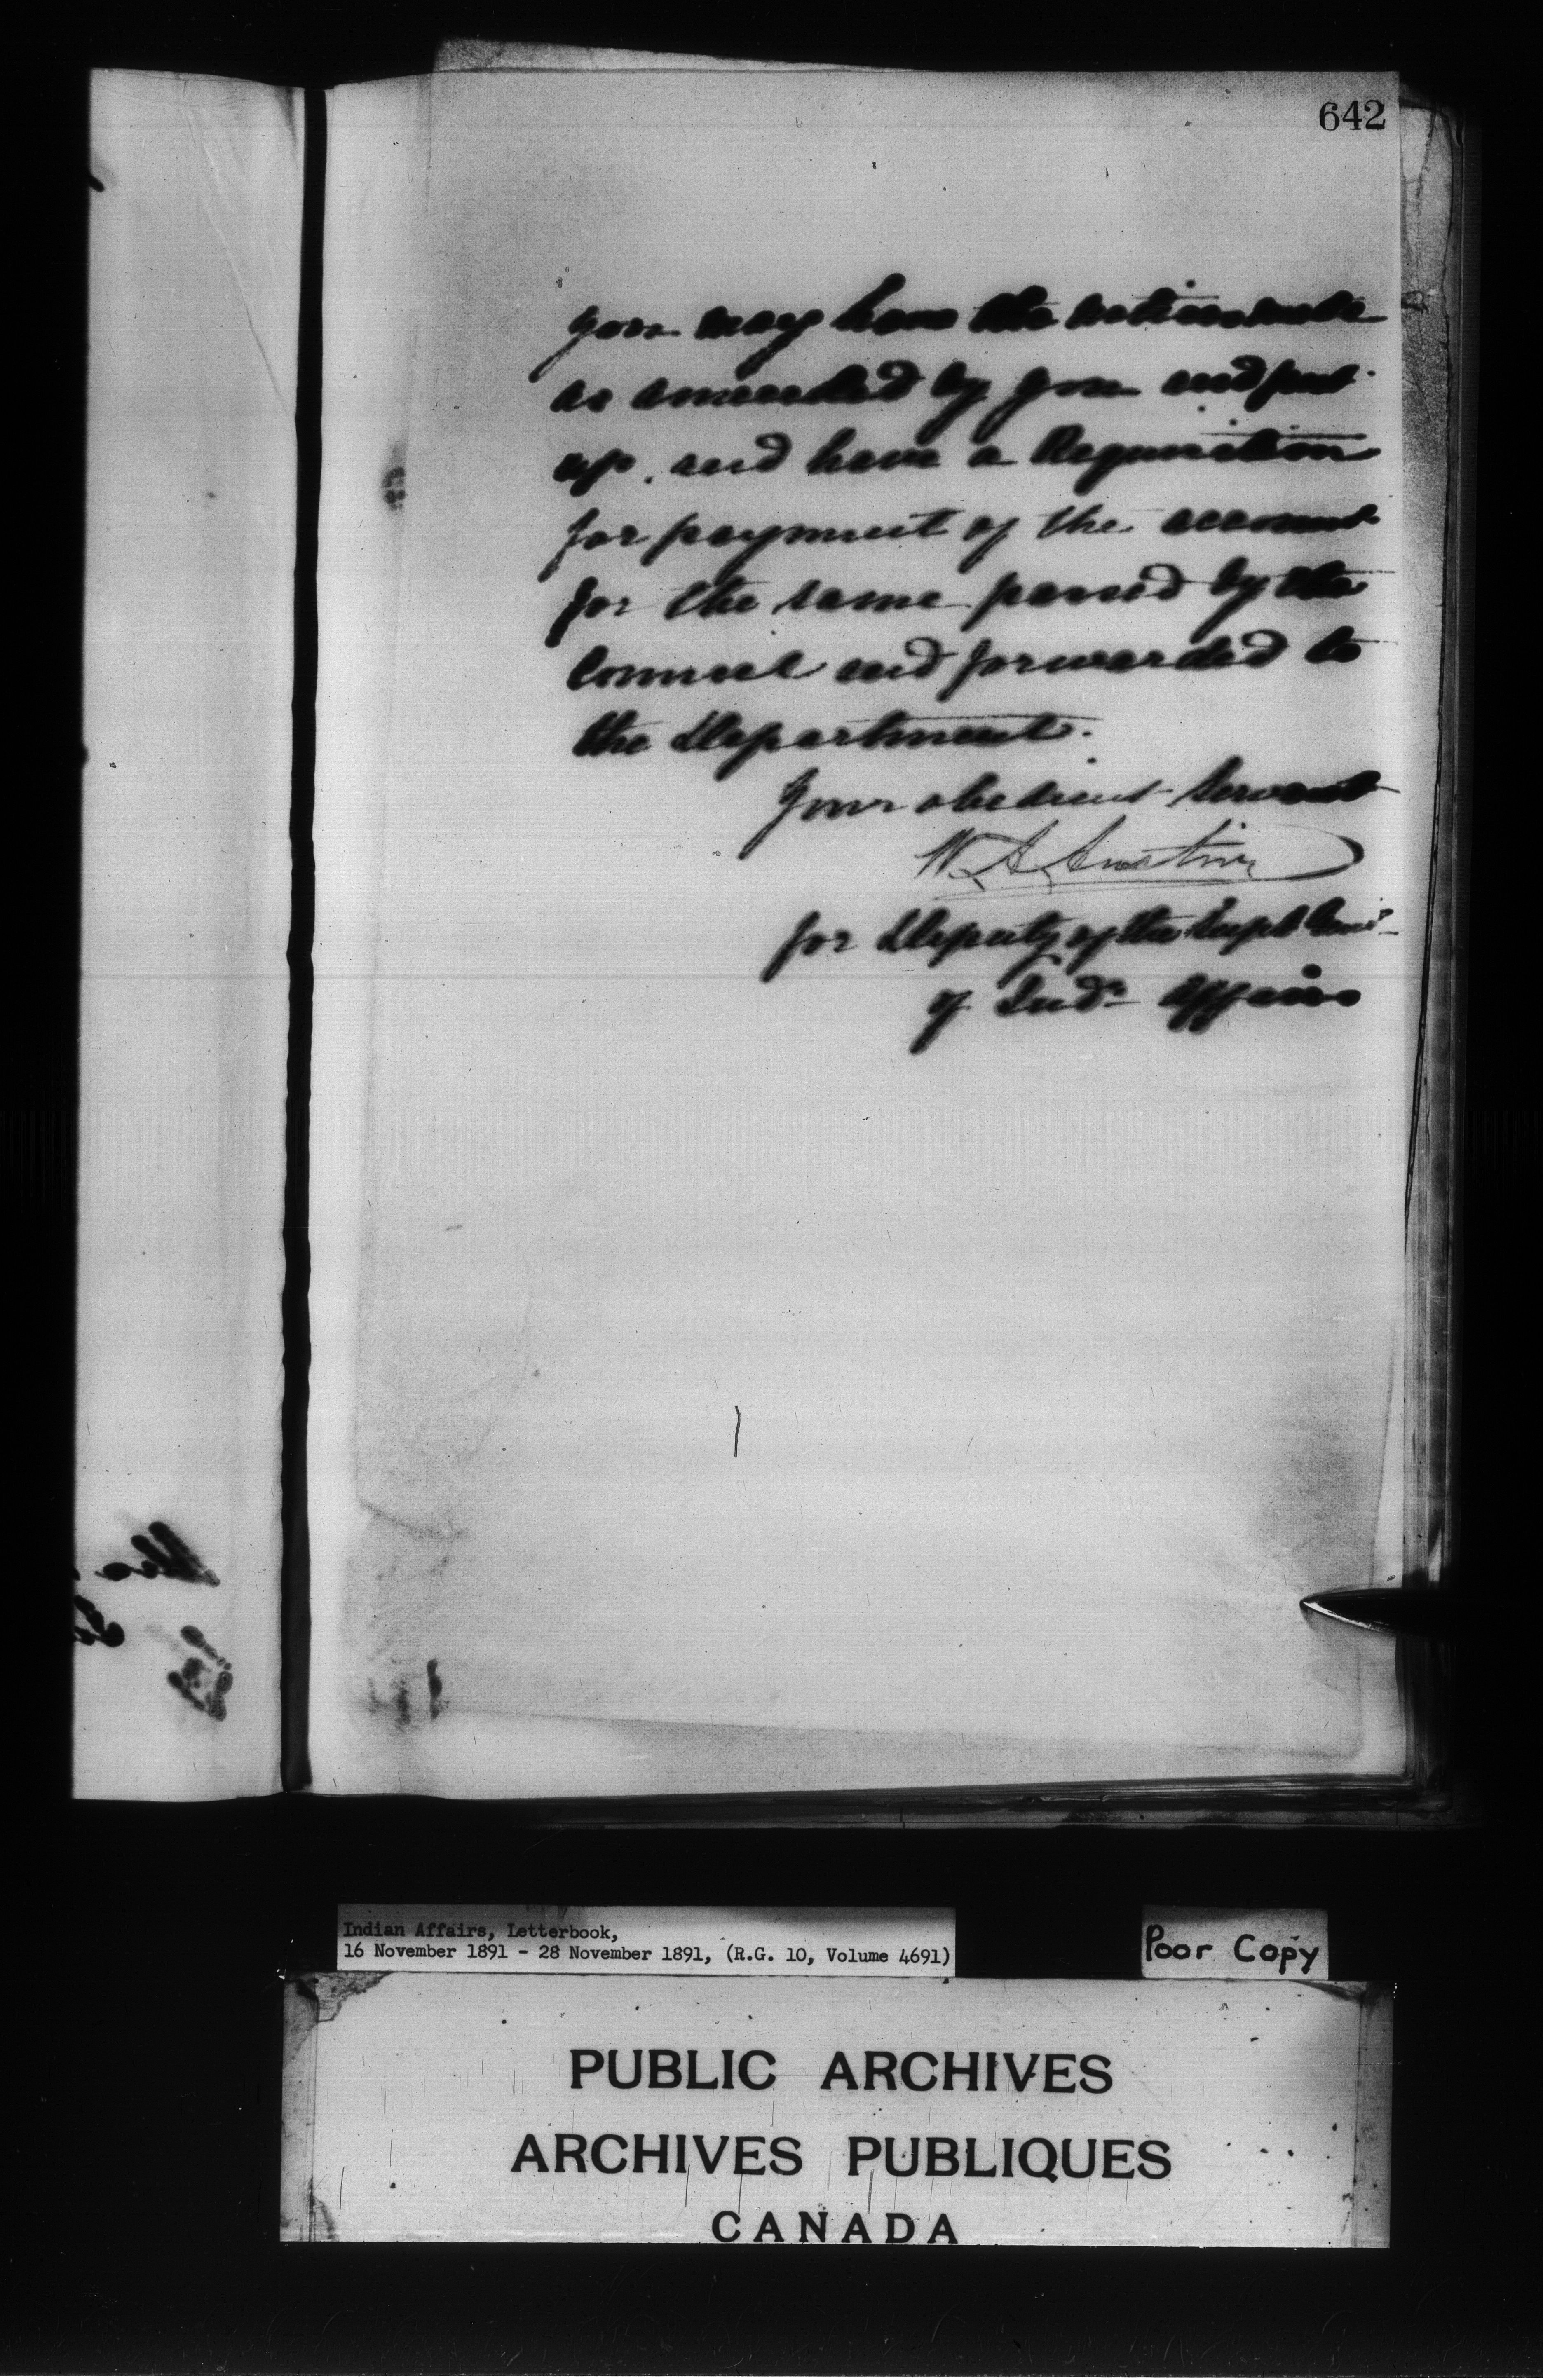 642
you may have the notices made
as amended by you and put
up, and have a Requisition
for payment of the account
for the same passed by the
Council and forwarded to
the Department.
Your obedient Servant
W. A. Austin
for Deputy of the Supt Genl
of Indn Affairs
Indian Affairs, Letterbook,
16 November 1891 - 28 November 1891, (R.G. 10, Volume 4691)
Poor Copy
PUBLIC ARCHIVES
ARCHIVES PUBLIQUES
CANADA